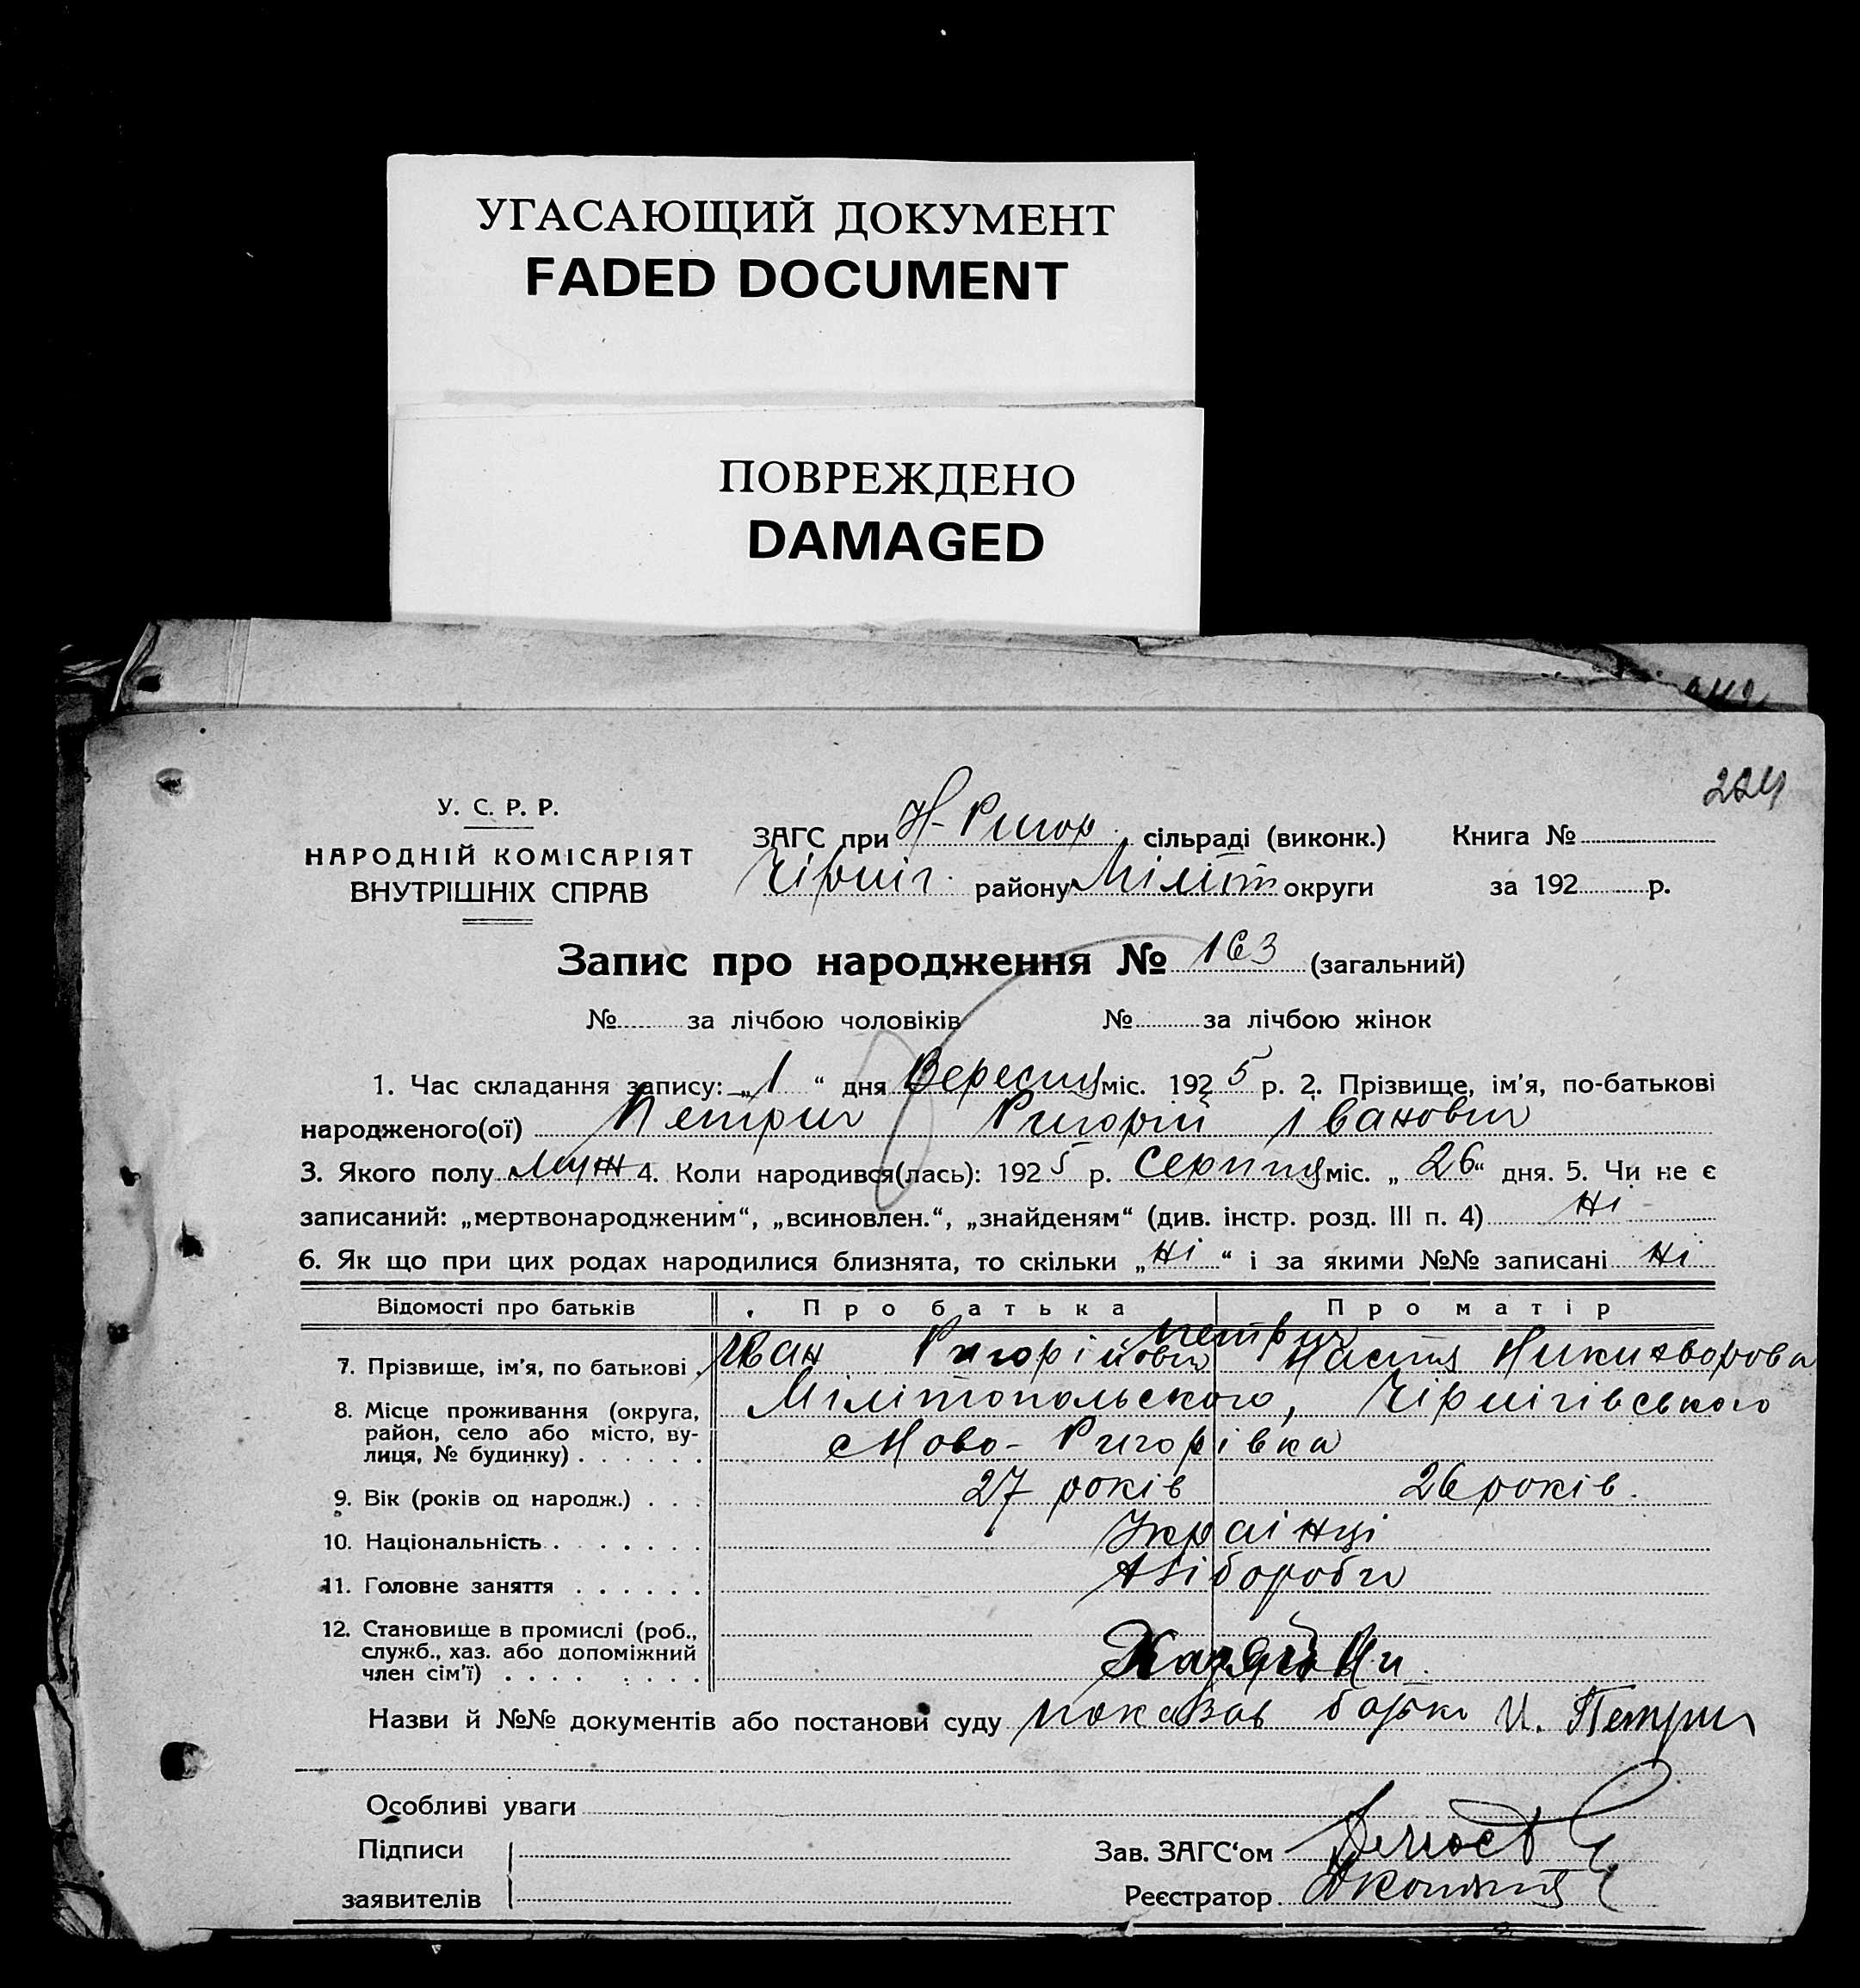 УГАСАЮЩИЙ ДОКУМЕНТ
FADED DOCUMENT
ПОВРЕЖДЕНО
DAMAGED
224
У. С. Р. Р.
НАРОДНІЙ КОМІСАРІЯТ
ВНУТРІШНІХ СПРАВ
ЗАГС при Н-Ригор. сільраді (виконк.) Книга №
Чірніг. району Міліт округи за 192 р.
Запис про народження № 163 (загальний)
№ за лічбою чоловіків № за лічбою жінок
1. Час складання запису: „1“ дня Вересня міс. 1925 р. 2. Прізвище, ім'я, по-батькові
народженого(ої) Петрич Ригорій Іванович
3. Якого полу Муж 4. Коли народився(лась): 1925 р. Серпня міс. „26“ дня. 5. Чи не є
записаний: „мертвонародженим“, „всиновлен.“, „знайденям“ (див. інстр. розд. III п. 4) Ні
6. Як що при цих родах народилися близнята, то скільки „Ні“ і за якими №№ записані Ні
Відомості про батьків Про батька Про матір
Петрич
7. Прізвище, ім'я, по батькові Іван Ригорійович Настя Никифорова
8. Місце проживання (округа, Мілітопольского, Чірнігівського
район, село або місто, ву-
лиця, № будинку) Ново-Ригорівка
9. Вік (років од народж.) 27 років 26 років.
10. Національність Украінці
11. Головне заняття Хліборобы
12. Становище в промислі (роб.,
служб., хаз. або допоміжний
член сім'ї)
Назви й №№ документів або постанови суду показав батько И. Петрич
Особливі уваги
Підписи Зав. ЗАГС'ом
заявителів Реєстратор